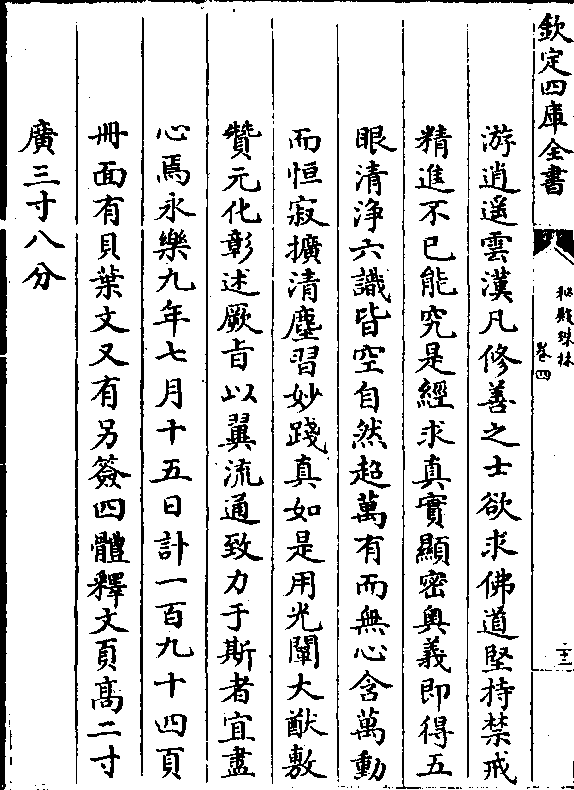 欽定四庫全書
秘殿珠林
卷四
十三
游逍遥雲漢凡修善之士欲求佛道堅持禁戒
精進不已能究是經求真實顯密奥義即得五
眼清浄六識皆空自然超萬有而無心含萬動
而恒寂擴清塵習妙踐真如是用光闡大猷敷
贊元化彰述厥㫖以翼流通致力于斯者宜盡
心焉永樂九年七月十五日計一百九十四頁
冊面有貝葉文又有另簽四體釋文頁髙二寸
廣三寸八分